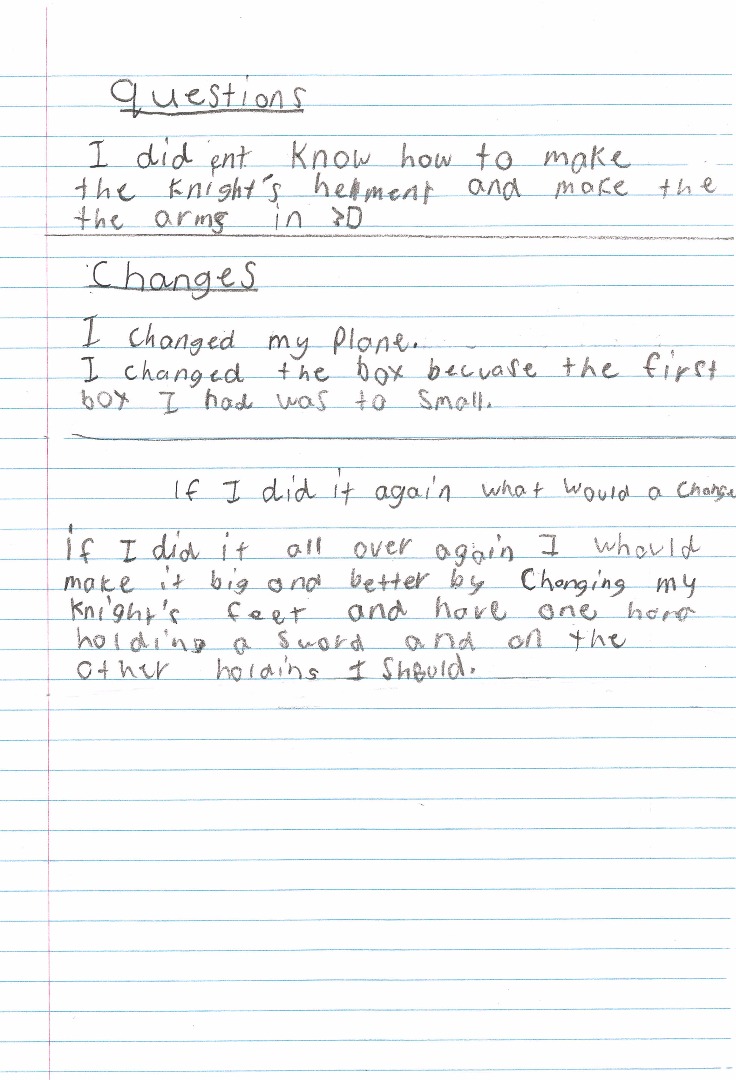 Questions
I did ent know how to make
the knight's helment and make the
the arms in 3D
Changes
I changed my Plane.
I changed the box becuase the first
box I had was to small.
If I did it again what would a Change
if I did it all over again I whould
make it big and better by Changing my
knight's feet and have one hand
holding a sword and on the
other holding I Should.